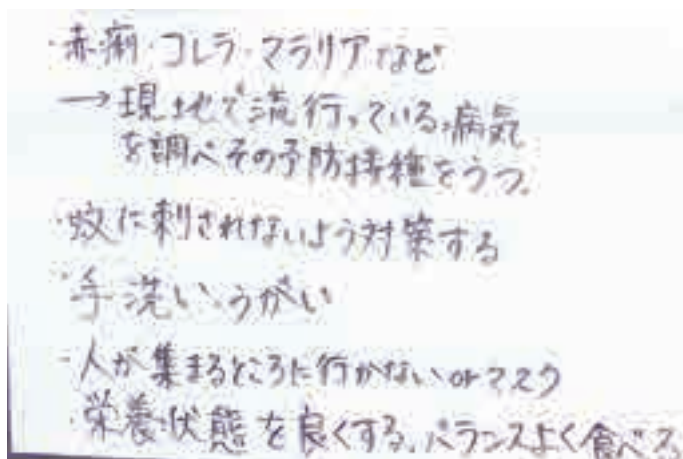 ・赤痢・コレラ・マラリアなど
→現地で流行っている病気
を調べその予防接種をうつ。
・蚊に刺されないよう対策する
・手洗い、うがい
・人が集まるところに行かないorマスク
・栄養状態を良くする、バランスよく食べる